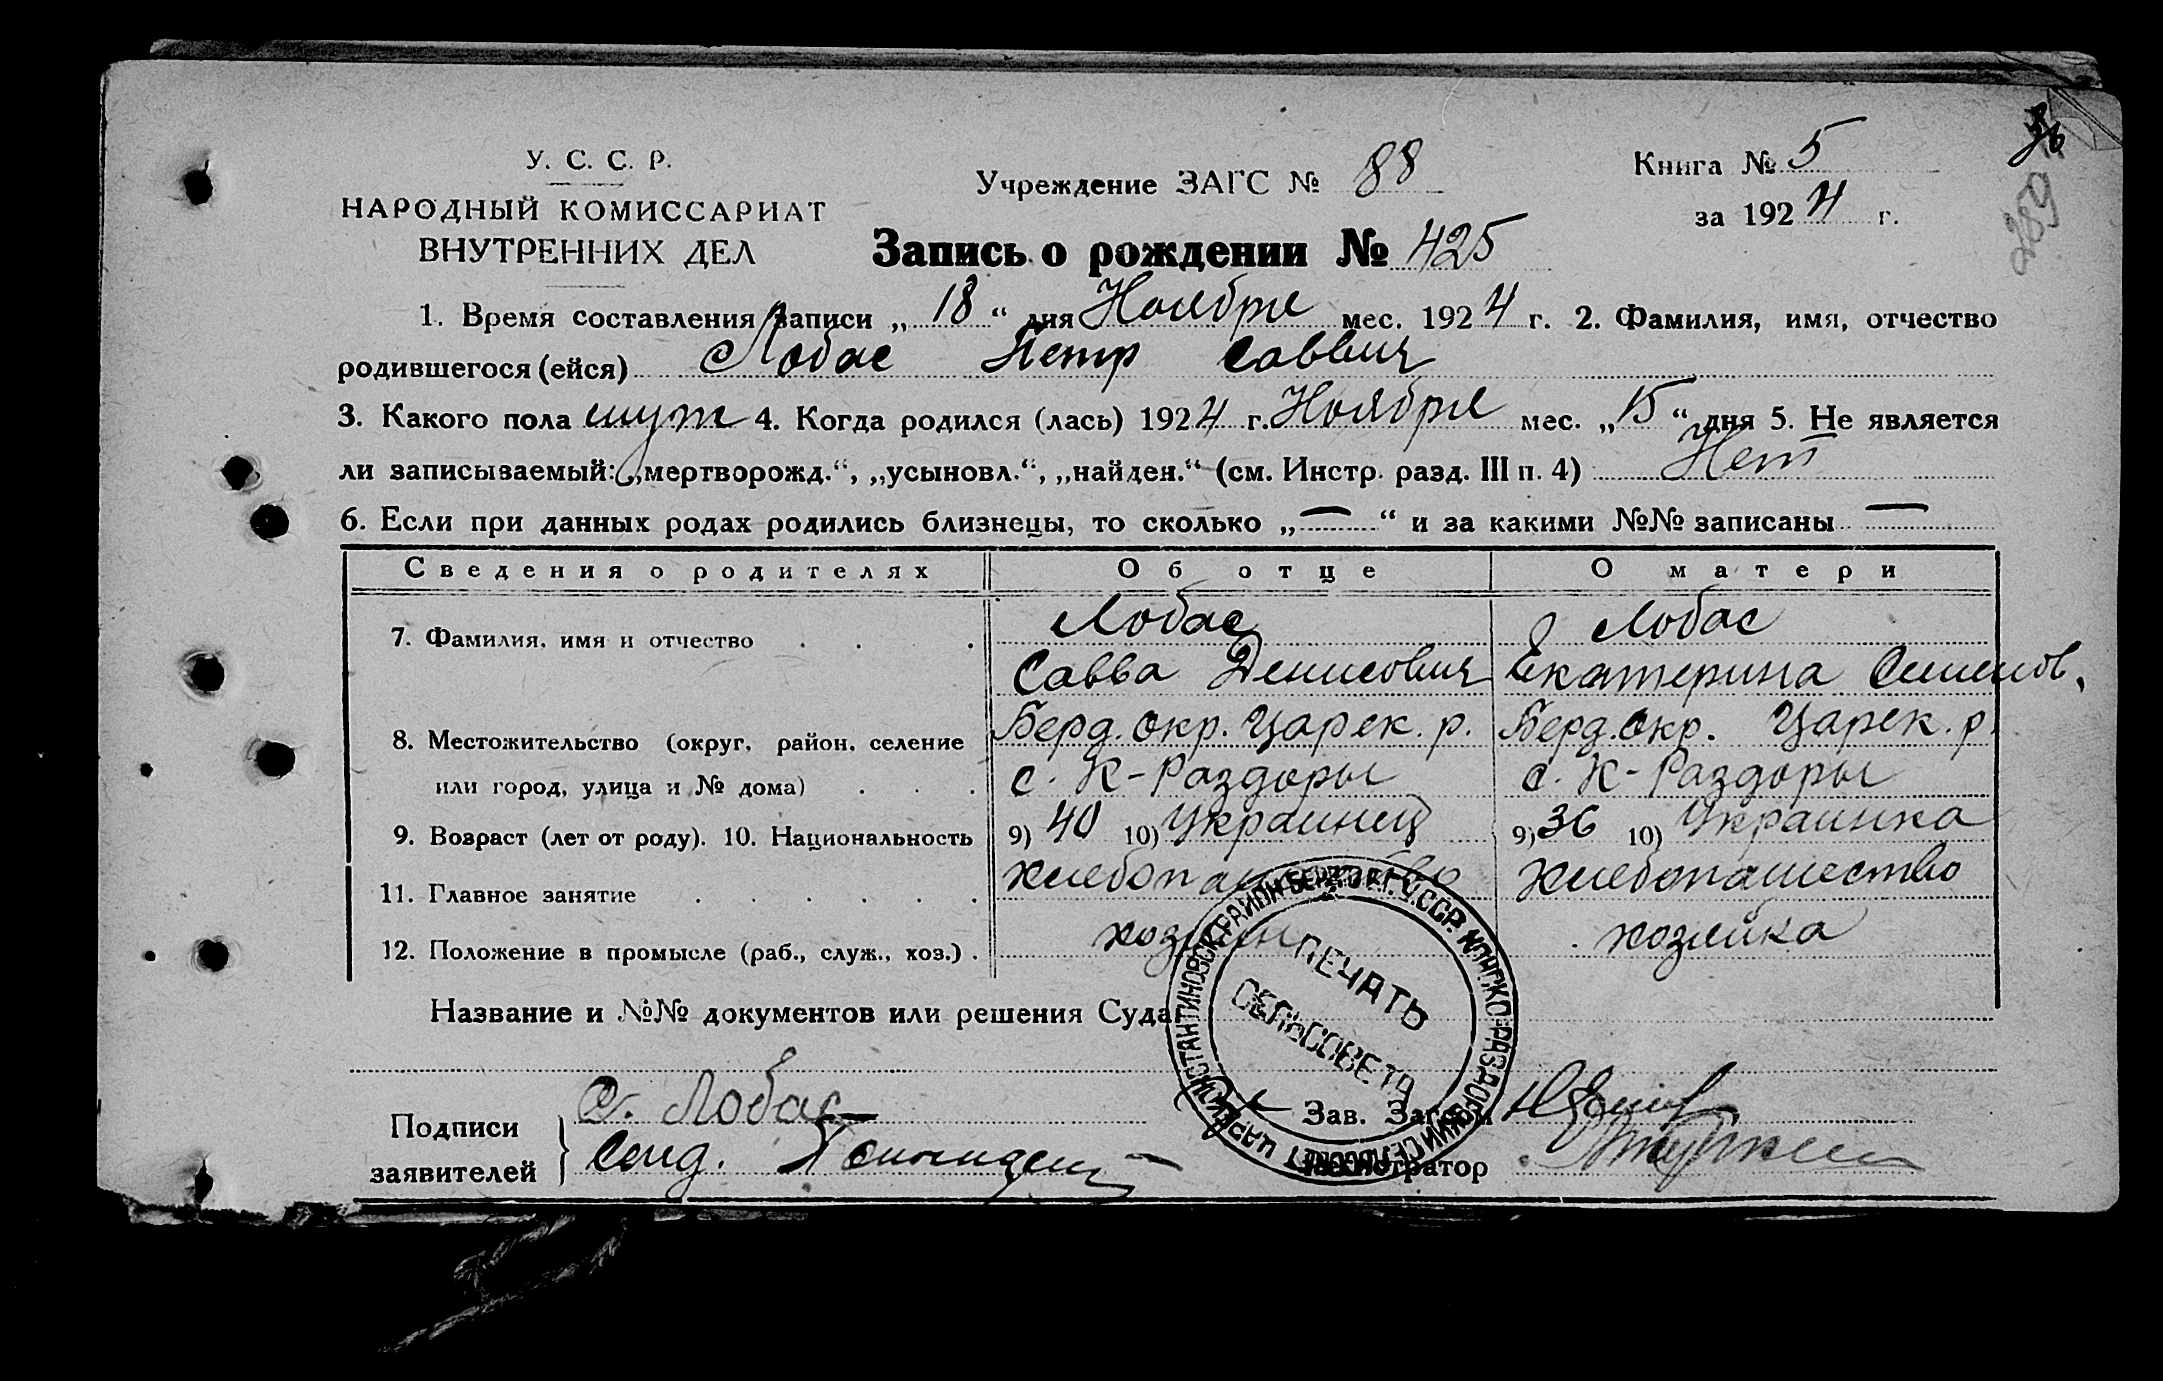 У. С. С. Р.
НАРОДНЫЙ КОМИССАРИАТ
ВНУТРЕННИХ ДЕЛ
Учреждение ЗАГС № 88
Книга № 5
за 1924 г.
36
289
Запись о рождении № 425
1. Время составления записи „18“ дня Ноября мес. 1924 г. 2. Фамилия, имя, отчество
родившегося (ейся) Лобас Петр Саввич
3. Какого пола муж 4. Когда родился (лась) 1924 г. Ноября мес. „15“ дня 5. Не является
ли записываемый: „мертворожд.“, „усыновл.“, „найден.“ (см. Инстр. разд. III п. 4) Нет
6. Если при данных родах родились близнецы, то сколько „—“ и за какими №№ записаны —
Сведения о родителях Об отце О матери
7. Фамилия, имя и отчество Лобас Лобас
Савва Денисович Екатерина Семенов.
8. Местожительство (округ, район, селение Берд. окр. Царек. р. Берд. окр. Царек. р.
или город, улица и № дома) с. К-Раздоры с. К-Раздоры
9. Возраст (лет от роду). 10. Национальность 9) 40 10) Украинец 9) 36 10) Украинка
11. Главное занятие хлебопашество хлебопашество
12. Положение в промысле (раб., служ., хоз.) хозяин хозяйка
Название и №№ документов или решения Суда
ПЕЧАТЬ
СЕЛЬСОВЕТА
Подписи
заявителей
С. Лобас
Зав. Загсом
Регистратор